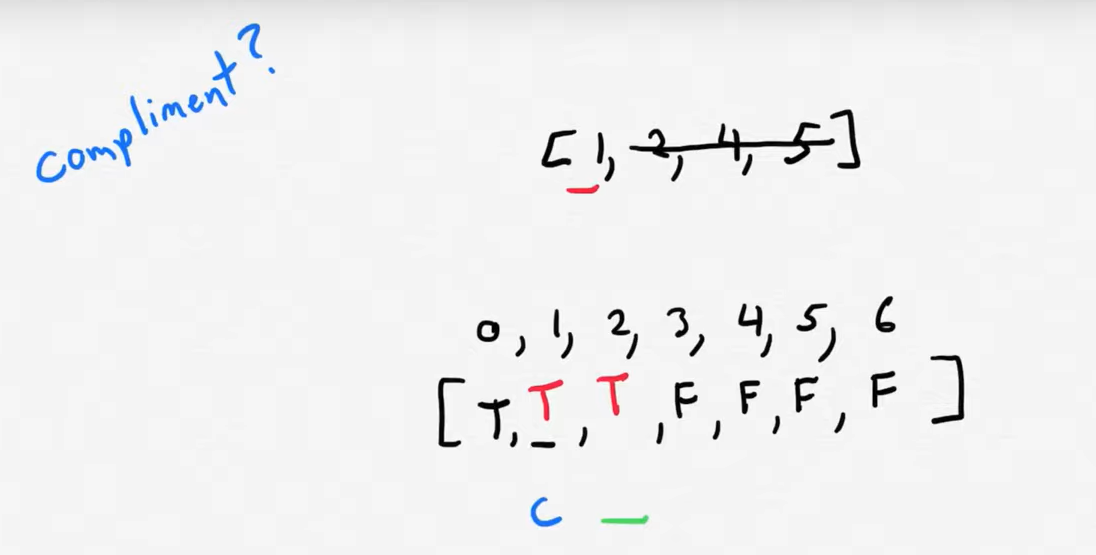 compliment?
[1, 2, 4, 5]
0, 1, 2, 3, 4, 5, 6
[T, T, T, F, F, F, F]
C